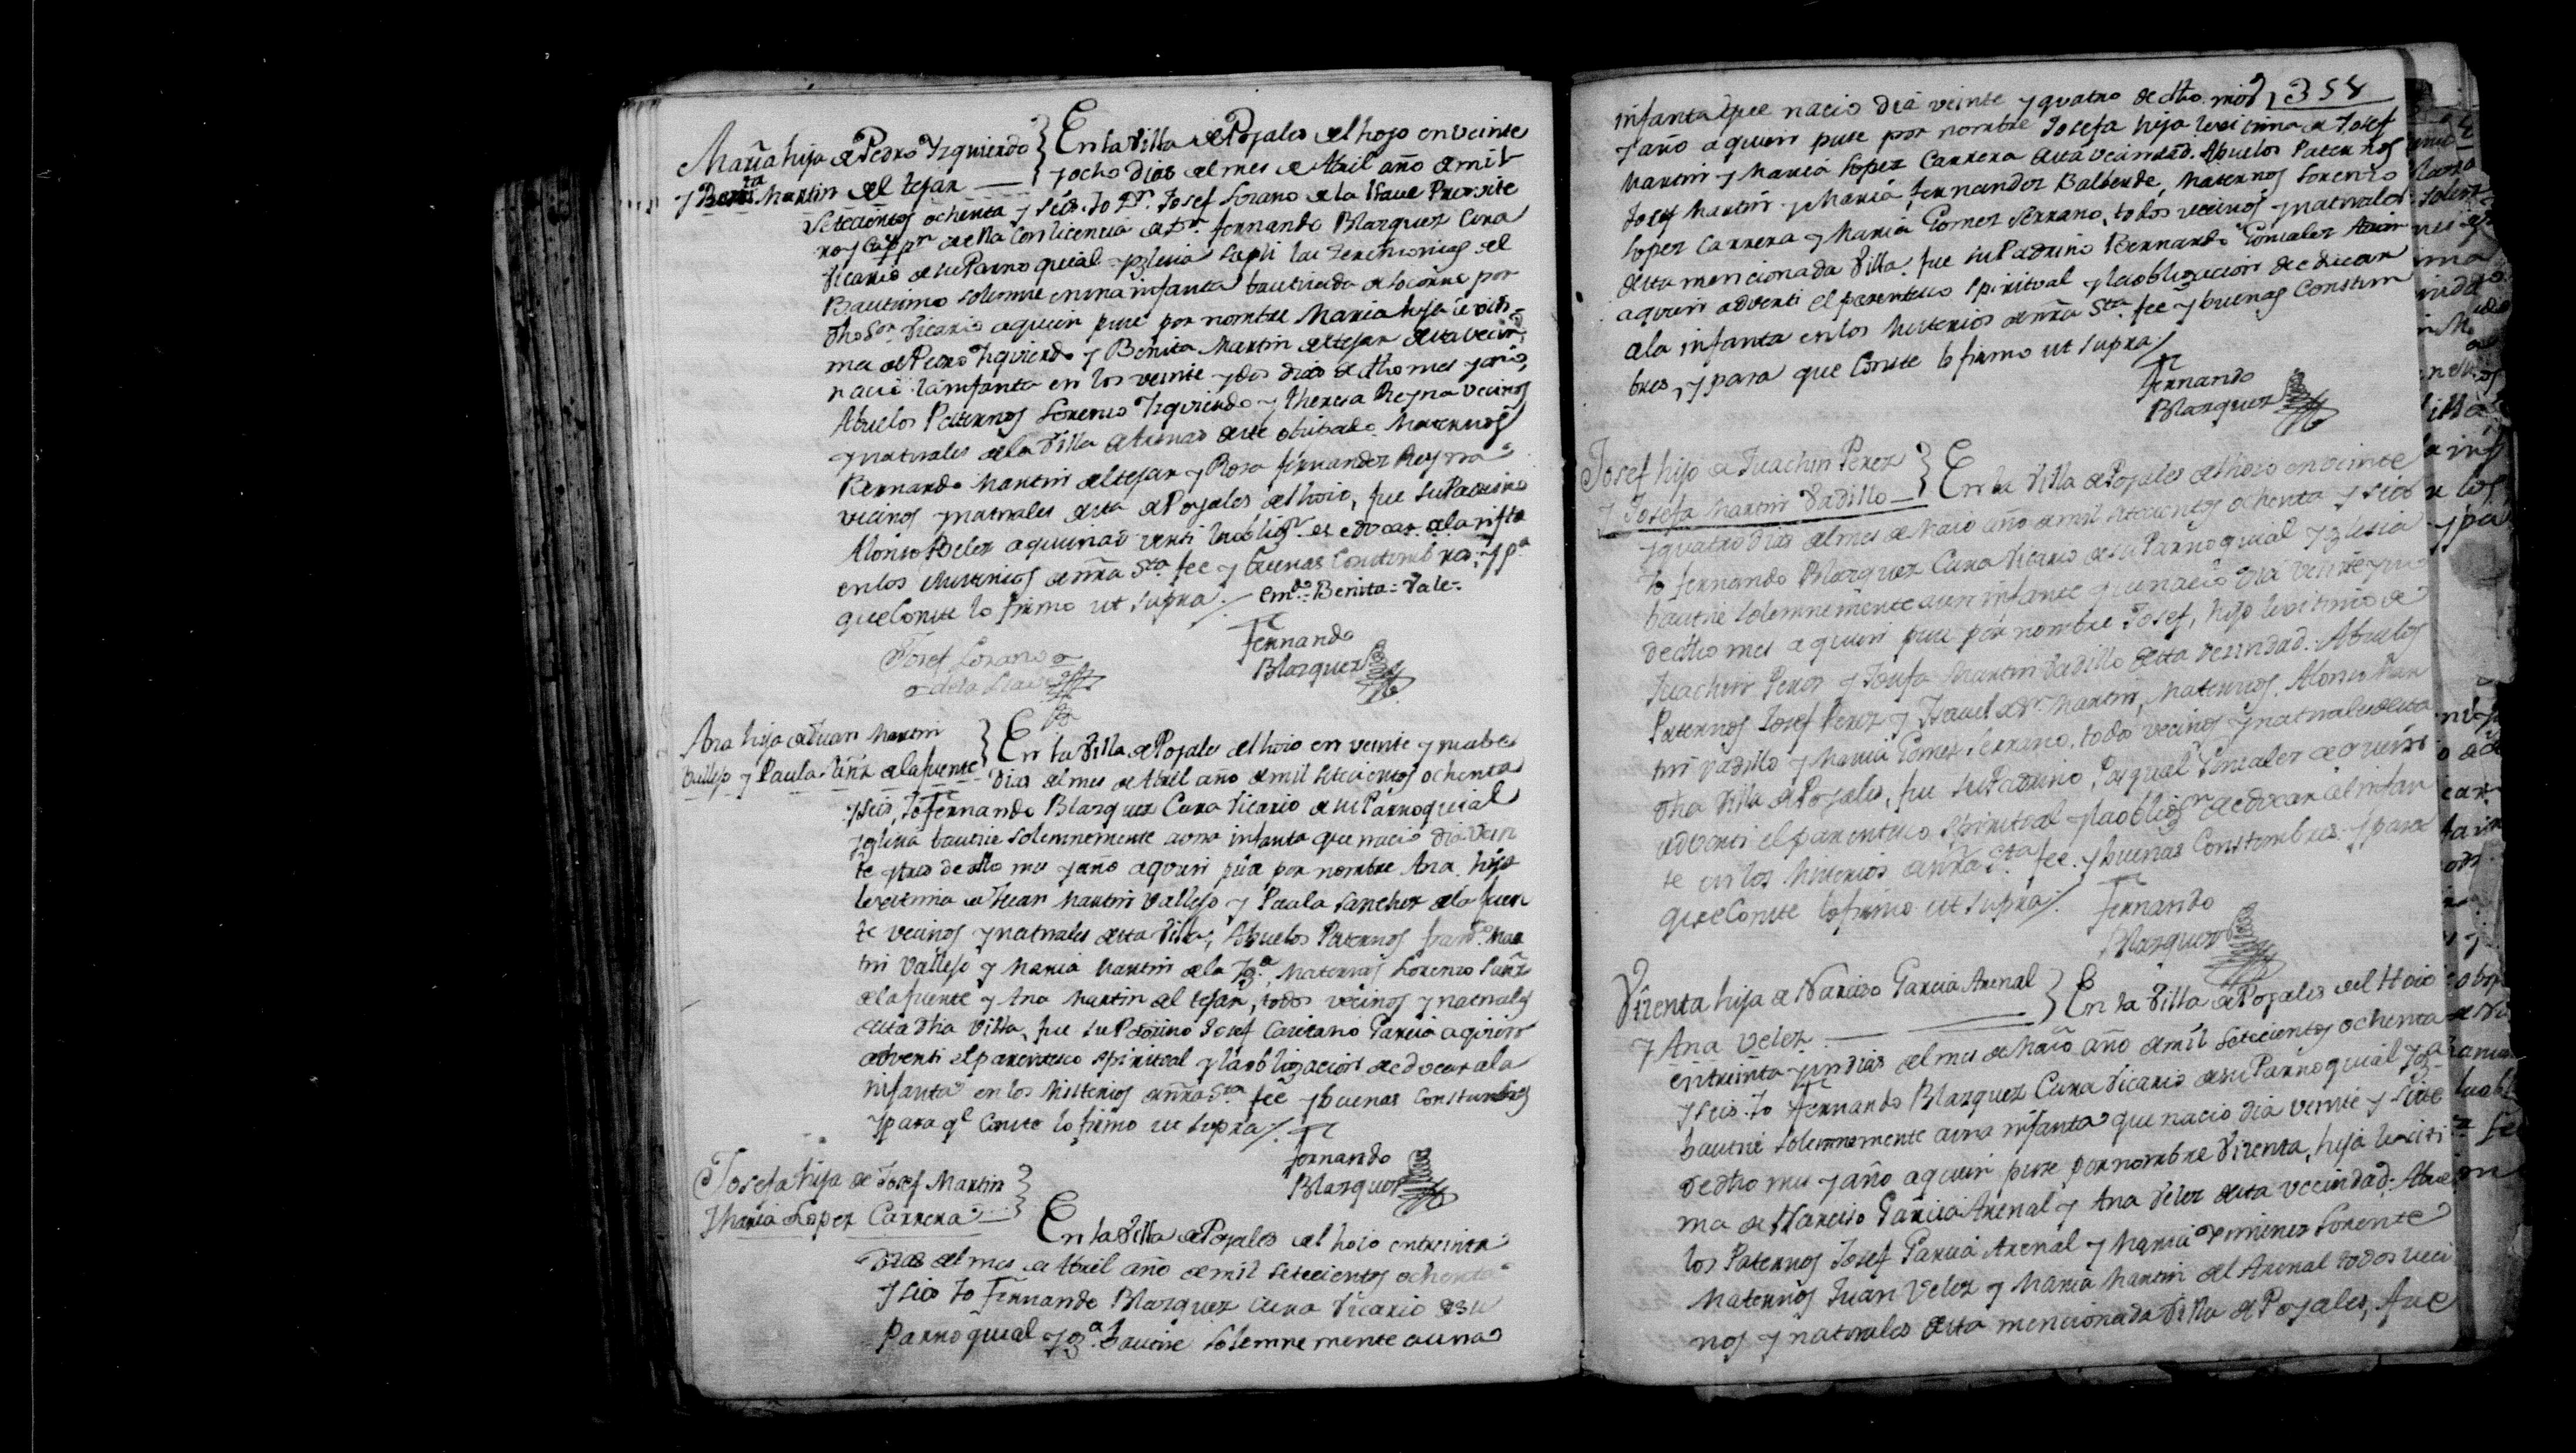 Maria hija de Pedro Izquierdo
y Benita Martin del tejar
En la Villa de Poyales del hoyo en veinte
y ocho dias del mes de Abril año de mil
setecientos ochenta y seis. Yo Dn. Josef Lozano de la Llave Presvite
ro y Cappn de ella con licencia de Dn. fernando Blazquez Cura
Vicario de su Parroquial Yglesia supli las zeremonias del
Bautismo solemne en una infanta bautizada de socorro por
dho Sor Vicario a quien puse por nombre Maria hija leviti=
ma de Pedro Izquierdo y Benita Martin del tejar de esta vecin.
nacio la infanta en los veinte y dos dias de dho mes y año,
Abuelos Paternos Lorenzo Izquierdo y theresa Reyna vecinos
y naturales de la Villa de Arenas de este obispado. Maternos
Bernardo Martin del tejar y Rosa fernandez Reyna
vecinos y naturales de esta de Poyales del hoio, fue su Padrino
Alonso Velez a quien adverti la oblign de educar a la infta
en los Misterios de nra Sta. fee y buenas Constumbres, y pa
que Conste lo firmo ut supra. emdo = Benita = Vale =
Josef Lozano
de la Llave
Fernando
Blazquez
Ana hija de Juan Martin
Vallejo y Paula Sanz de la fuente
En la Villa de Poyales del hoio en veinte y nuebe
dias del mes de Abril año de mil setecientos ochenta
y seis, Yo Fernando Blazquez Cura Vicario de su Parroquial
Yglesia bautize solemnemente a una infanta que nacio dia vein
te y tres de dho mes y año a quien puse por nombre Ana hija
levitima de Juan Martin Vallejo y Paula Sanchez de la fuen
te vecinos y naturales de esta Villa, Abuelos Paternos franco. Mar
tin Vallejo y Maria Martin de la Yga, Maternos Lorenzo Sanz
de la fuente y Ana Martin del tejar, todos vecinos y naturales
de esta dha Villa, fue su Padrino Josef Caietano Garcia a quien
adverti el parentesco spiritual y la obligacion de educar a la
infanta en los Misterios de nra Sta fee y buenas Constumbres
y para qe Conste lo firmo ut supra
Fernando
Blazquez
Josefa hija de Josef Martin
y Maria Lopez Carrera
En la Villa de Poyales del hoio en treinta
dias del mes de Abril año de mil setecientos ochenta
y seis Yo Fernando Blazquez Cura Vicario de su
Parroquial Yga bautize solemnemente a una
354
infanta que nacio dia veinte y quatro de dho. mes
y año a quien puse por nombre Josefa hija levitima de Josef
Martin y Maria Lopez Carrera de esta vecindad. Abuelos Paternos
Josef Martin y Maria fernandez Balberde, Maternos Lorenzo
Lopez Carrera y Maria Gomez Serrano, todos vecinos y naturales
de esta mencionada Villa. fue su Padrino Bernardo Gonzalez
a quien adverti el parentesco spiritual y la obligacion de educar
a la infanta en los Misterios de nra Sta. fee y buenas Constum
bres, y para que Conste lo firmo ut supra
Fernando
Blazquez
Josef hijo de Juachin Perez
y Josefa Martin Vadillo
En la Villa de Poyales del hoio en veinte
y quatro dias del mes de Maio año de mil setecientos ochenta y seis
Yo fernando Blazquez Cura Vicario de su Parroquial Yglesia
bautize solemnemente a un infante que nacio dia veinte y uno
de dho mes a quien puse por nombre Josef, hijo levitimo de
Juachin Perez y Josefa Martin Vadillo de esta vezindad. Abuelos
Paternos Josef Perez y Ysavel de Sn. Martin, Maternos. Alonso Mar
tin Vadillo y Maria Gomez Serrano. todos vecinos y naturales de esta
dha Villa de Poyales, fue su Padrino, Pasqual Gonzalez a quien
adverti el parentesco spiritual y la oblign de educar al infan
te en los Misterios de nra Sta fee. y buenas Constumbres. y para
que Conste lo firmo ut supra
Fernando
Blazquez
Vizenta hija de Narziso Garcia Arenal
y Ana Velez
En la Villa de Poyales del Hoio
en treinta y un dias del mes de Maio año de mil setecientos ochenta
y seis. Yo Fernando Blazquez Cura Vicario de su Parroquial Yga
bautize solemnemente a una infanta que nacio dia veinte y siete
de dho mes y año a quien puse por nombre Vizenta, hija leviti
ma de Narciso Garcia Arenal y Ana Velez de esta vecindad. Abue
los Paternos Josef Garcia Arenal y Maria Ximenez Lorente
Maternos Juan Velez y Maria Martin del Arenal todos veci
nos y naturales de esta mencionada Villa de Poyales, fue